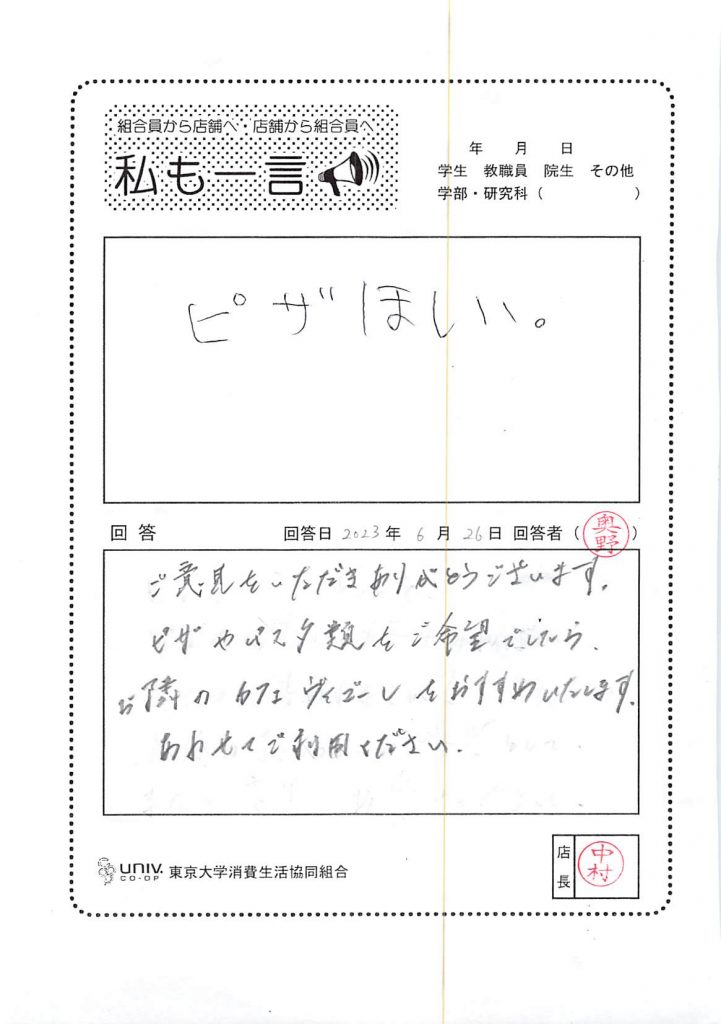 組合員から店舗へ・店舗から組合員へ
私も一言
年 月 日
学生 教職員 院生 その他
学部・研究科（ ）
ピザほしい。
回答 回答日 2023年 6月 26日 回答者（奥野）
ご意見をいただきありがとうございます。
ピザやパスタ類をご希望でしたら、
お隣のカフェヴィゴーレをおすすめいたします。
あわせてご利用ください。
UNIV. CO-OP 東京大学消費生活協同組合
店長 中村